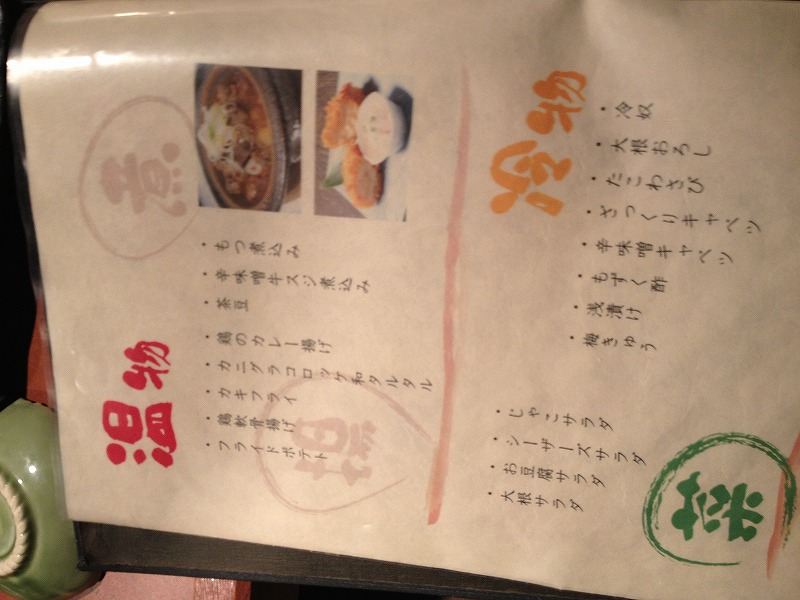 冷物
・冷奴
・大根おろし
・たこわさび
・ざっくりキャベツ
・辛味噌キャベツ
・もずく酢
・浅漬け
・梅きゅう
菜
・じゃこサラダ
・シーザーズサラダ
・お豆腐サラダ
・大根サラダ
温物
煮
・もつ煮込み
・辛味噌牛スジ煮込み
・茶豆
・鶏のカレー揚げ
・カニグラコロッケ和タルタル
・カキフライ
・鶏軟骨揚げ
・フライドポテト